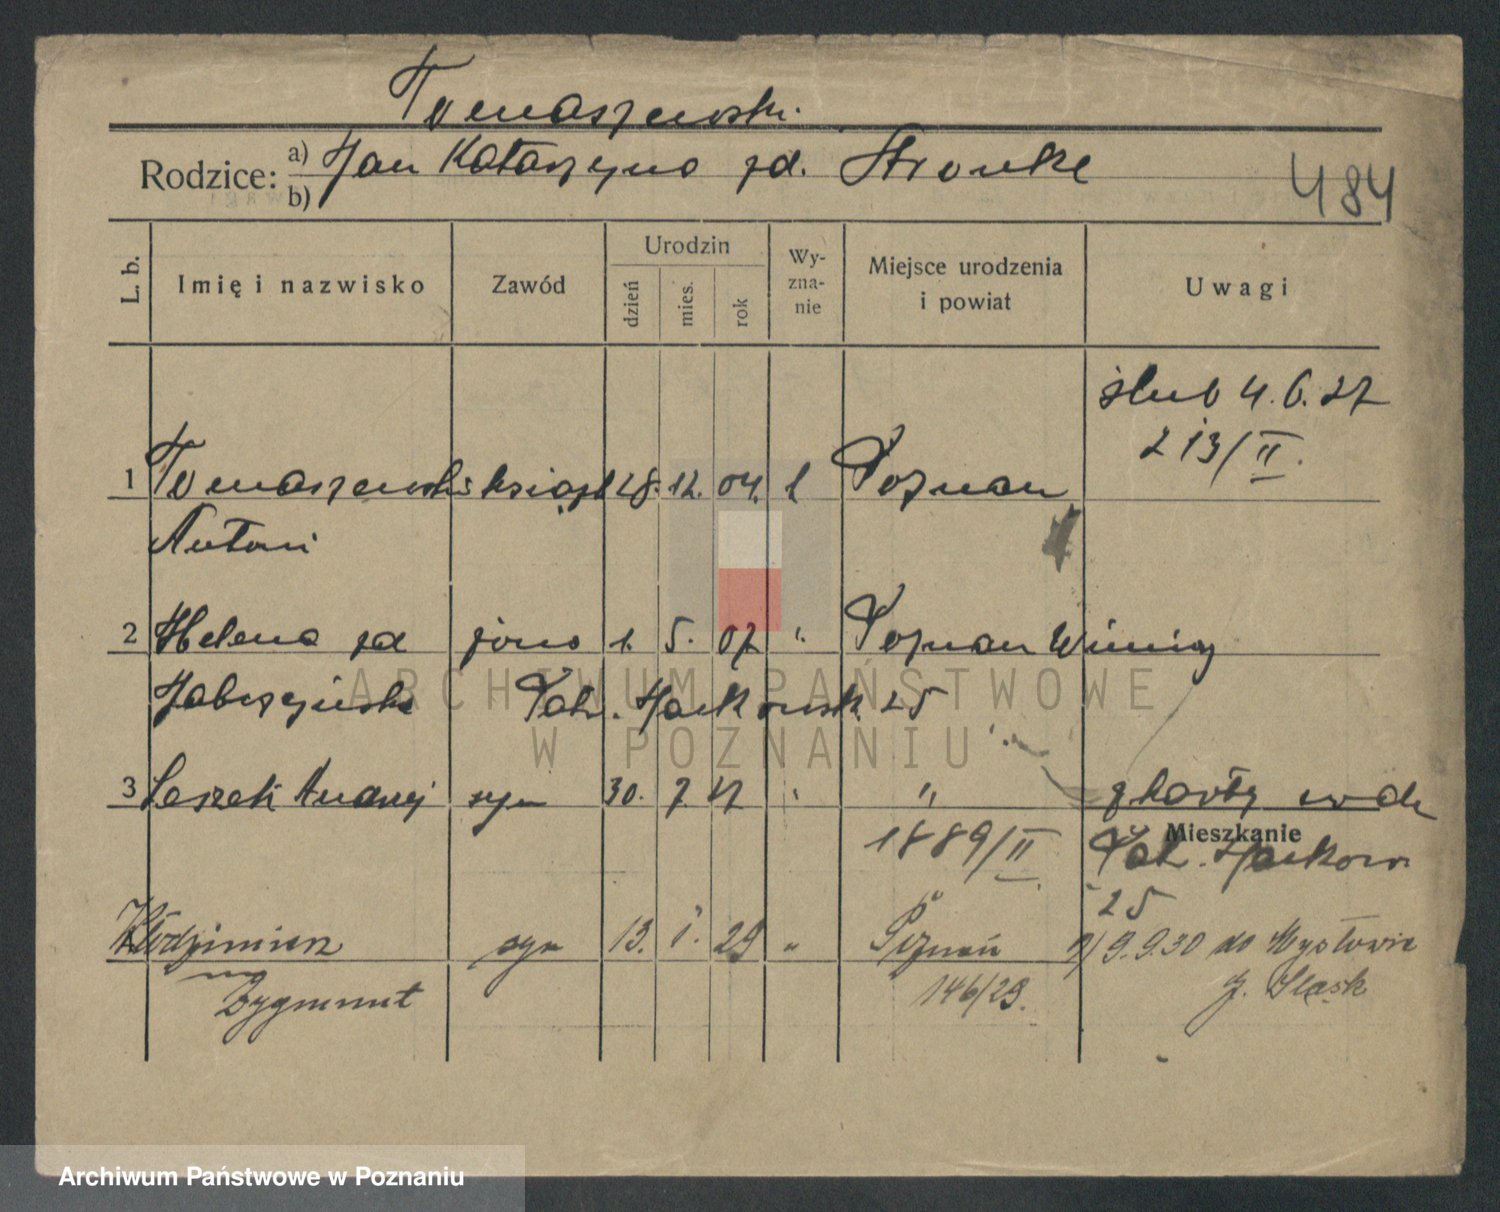 Tomaszewski.
Rodzice: a) Jan Katarzyna zd. Stronke
b)
484
L. b. Imię i nazwisko Zawód Urodzin dzień mies. rok Wyznanie Miejsce urodzenia i powiat Uwagi
ślub 4.6.27
213/II.
1 Tomaszewski książk 28. 12. 04. k Poznan
Antoni
2 Helena zd żona 1. 5. 07 " Poznan Winiary
Jabczyńska Patr. Jackowsk. 25
3 Leszek Andrzej syn 30. 7. 27 " "
1889/II Mieszkanie
Patr. Jackow.
25
Włodzimierz syn 13. 1. 29 " Poznań 9.9.30 do Mysłowic
Zygmunt 146/29. G. Śląsk
ARCHIWUM PAŃSTWOWE
W POZNANIU
Archiwum Państwowe w Poznaniu